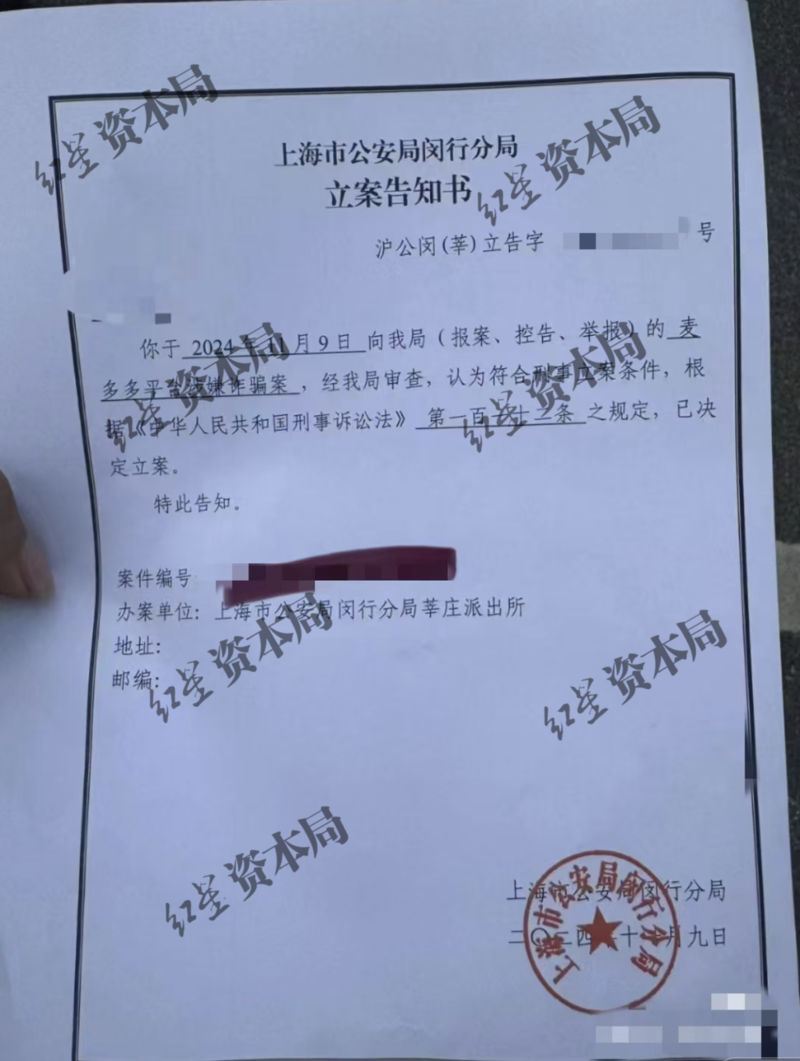 上海市公安局闵行分局
立案告知书
沪公闵(莘)立告字 号
你于 2024年11月9日 向我局(报案、控告、举报)的 麦
多多平台涉嫌诈骗案,经我局审查,认为符合刑事立案条件,根
据《中华人民共和国刑事诉讼法》 第一百 十二条 之规定,已决
定立案。
特此告知。
案件编号
办案单位:上海市公安局闵行分局莘庄派出所
地址:
邮编:
上海市公安局闵行分局
二〇二四 十 月九日
上海市公安局闵行分局
红星 资本局
红星 资本局
红星 资本局
红星 资本局
红星 资本局
红星 资本局
红星 资本局